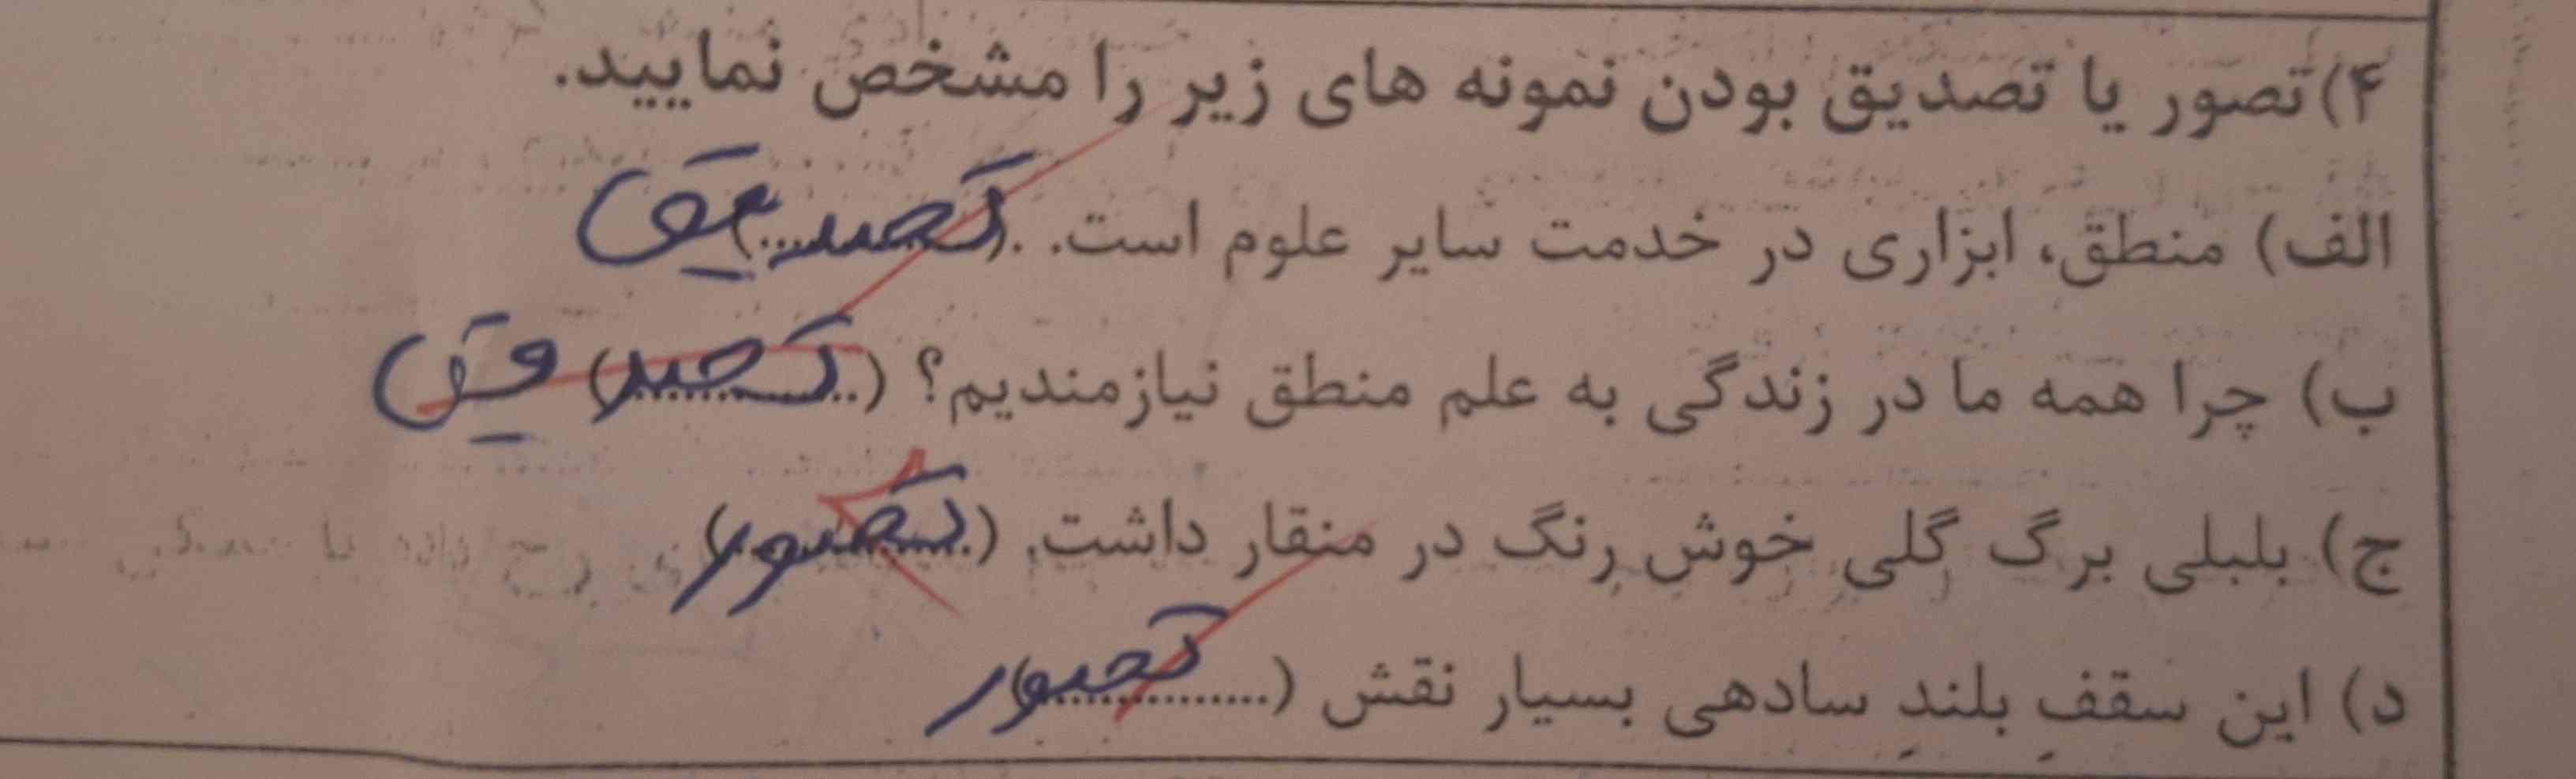 ۴) تصور یا تصدیق بودن نمونه های زیر را مشخص نمایید.
الف) منطق، ابزاری در خدمت سایر علوم است. (تصدیق)
ب) چرا همه ما در زندگی به علم منطق نیازمندیم؟ (تصدیق)
ج) بلبلی برگ گلی خوش رنگ در منقار داشت. (تصور)
د) این سقفِ بلندِ سادهی بسیار نقش (تصور)